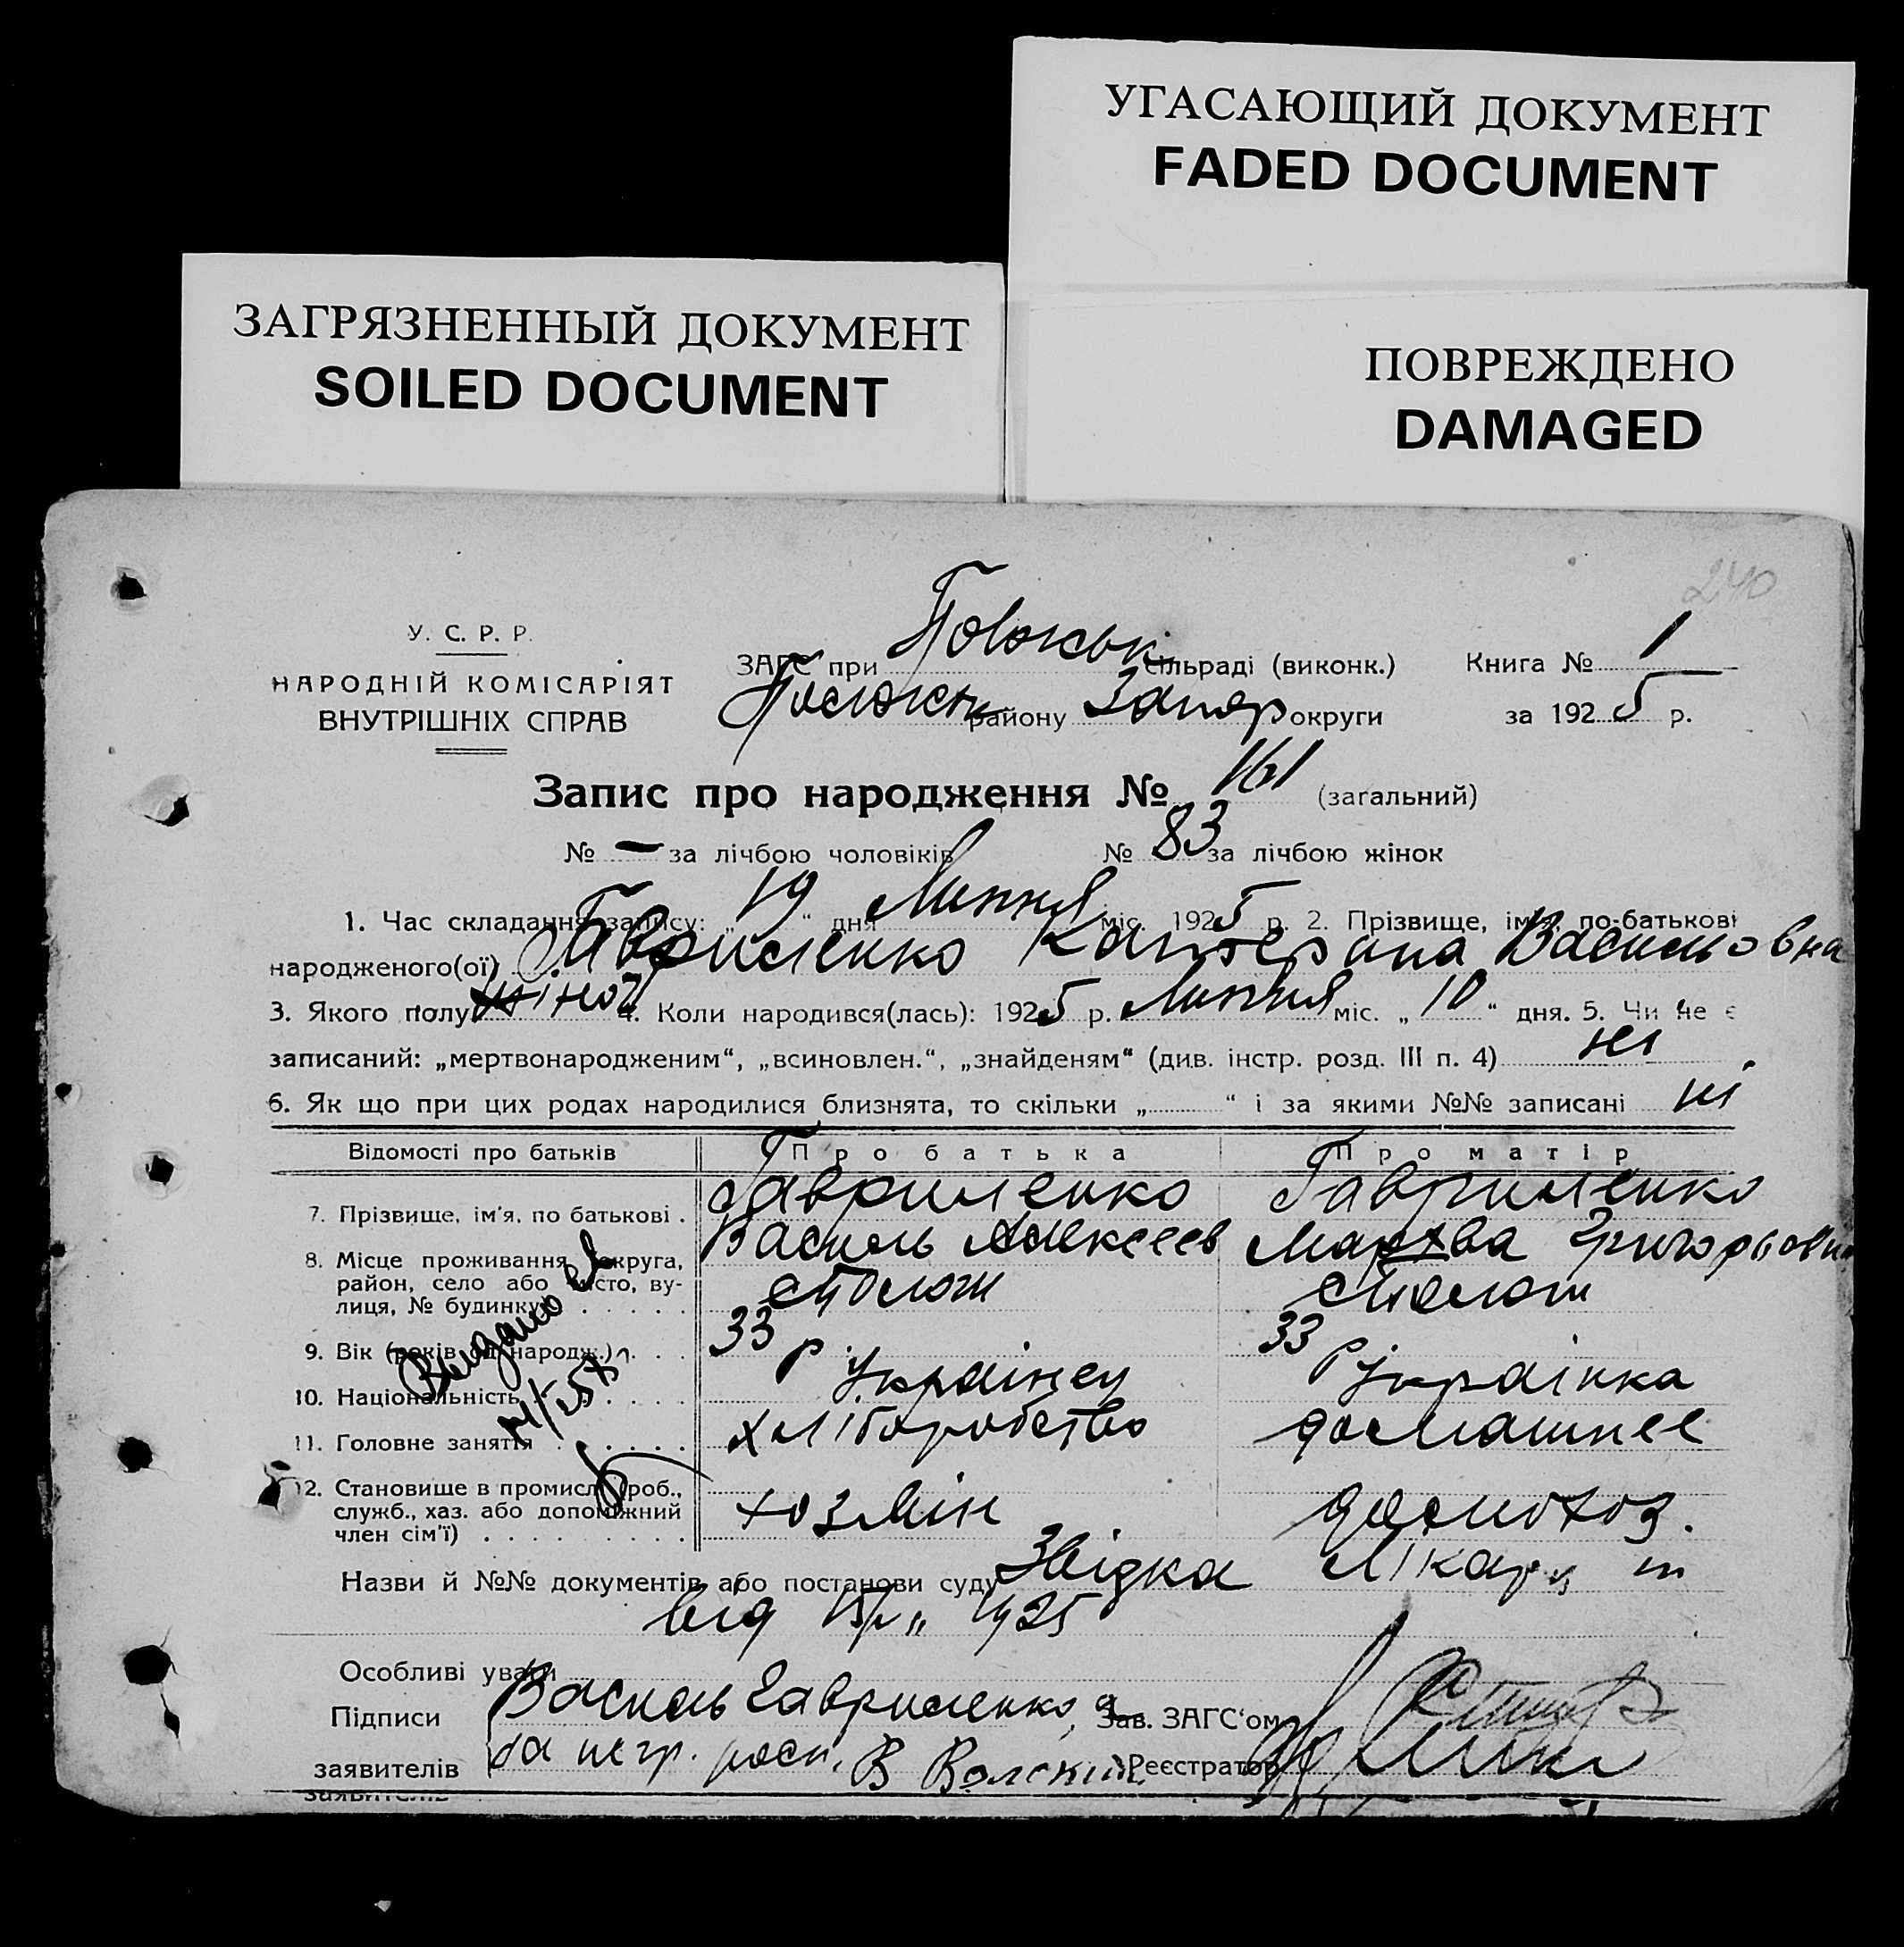 УГАСАЮЩИЙ ДОКУМЕНТ
FADED DOCUMENT
ЗАГРЯЗНЕННЫЙ ДОКУМЕНТ
SOILED DOCUMENT
ПОВРЕЖДЕНО
DAMAGED
240
У. С. Р. Р.
НАРОДНІЙ КОМІСАРІЯТ
ВНУТРІШНІХ СПРАВ
ЗАГС при сільраді (виконк.)
району Запор округи
Книга № 1
за 1925 р.
Запис про народження № 161 (загальний)
№ — за лічбою чоловіків № 83 за лічбою жінок
1. Час складання запису: „ 19 “ дня Липня міс. 1925 р. 2. Прізвище, ім'я, по-батькові
народженого(ої) Гавриленко Катерина Васильовна
3. Якого полу жіноч 4. Коли народився(лась): 1925 р. Липня міс. „ 10 “ дня. 5. Чи не є
записаний: „мертвонародженим“, „всиновлен.“, „знайденям“ (див. інстр. розд. III п. 4) ні
6. Як що при цих родах народилися близнята, то скільки „ “ і за якими №№ записані ні
Відомості про батьків Про батька Про матір
7. Прізвище, ім'я, по батькові . Гавриленко Гавриленко
Василь Алексеев Мархва Григорьовна
8. Місце проживання (округа,
район, село або місто, ву-
лиця, № будинку) . . . . .
9. Вік (років од народж.) . . . 33 р. 33 р
10. Національність . . . . . Українец Українка
11. Головне заняття . . . . . хліборобство домашнее
12. Становище в промислі (роб.,
служб., хаз. або допоміжний
член сім'ї) . . . . . . . . .
Видано
Назви й №№ документів або постанови суду Звідка Лікаря
від 1925
Особливі уваги
Підписи Василь Гавриленко, Зав. ЗАГС'ом
заявителів за негр. росп. В Волский Реєстратор
заявителів